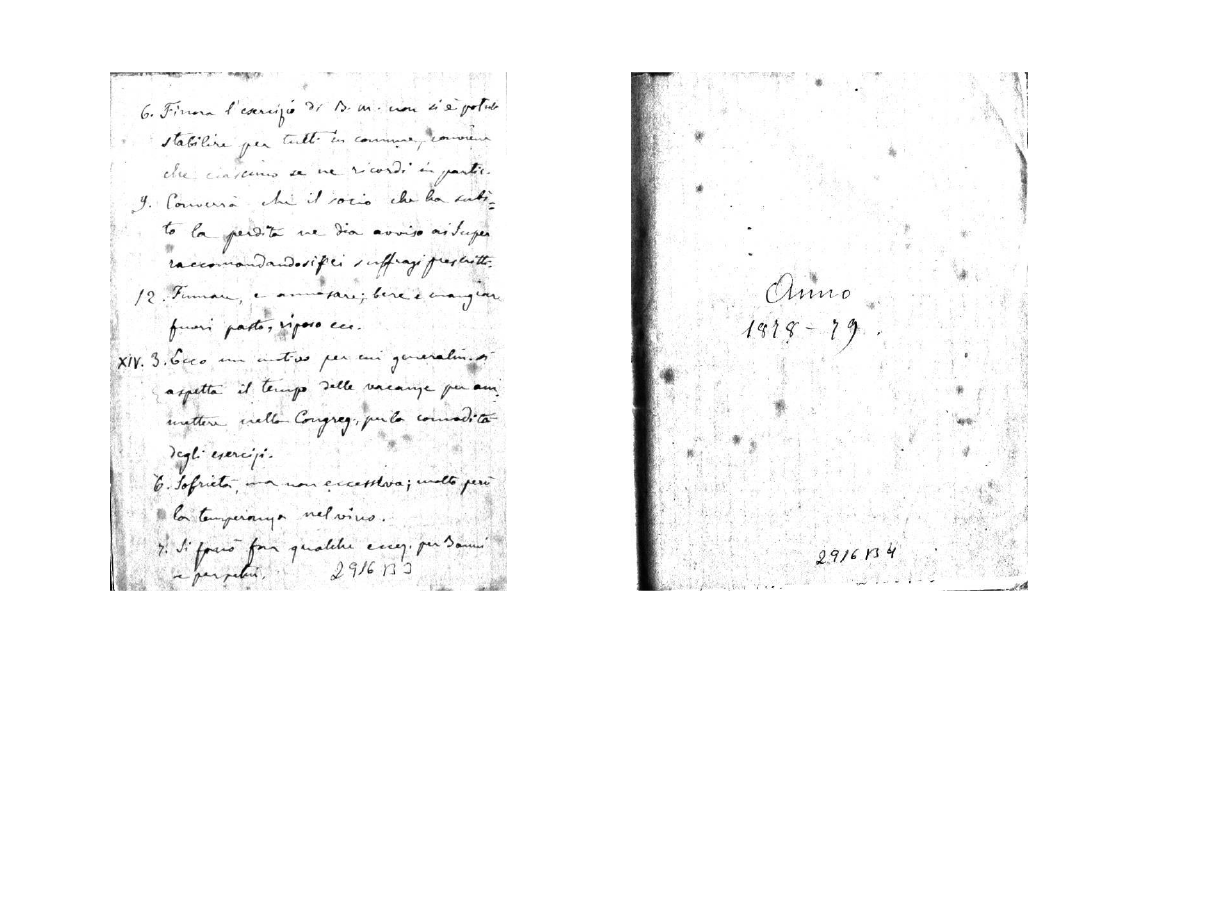 6. Finora l'esercizio di B. m. non si è potuto
stabilire per tutti in comune, conviene
che ciascuno se ne ricordi in partic.
9. Converrà che il socio che ha subi=
to la perdita ne dia avviso ai Super
raccomandandosi pei suffragi prescritti.
12. Fumare, e annasare; bere e mangiar
fuori pasto, riposo ecc.
XIV. 3. Ecco un motivo per cui generalm. si
aspetta il tempo delle vacanze per am-
mettere nella Congreg., per la comodità
degli esercizi.
6. Sobrietà, ma non eccessiva; molto però
la temperanza nel vino.
7. Si farà qualche eccez. per
e perpetui.
2916 B 3
Anno
1878-79.
2916 B 4